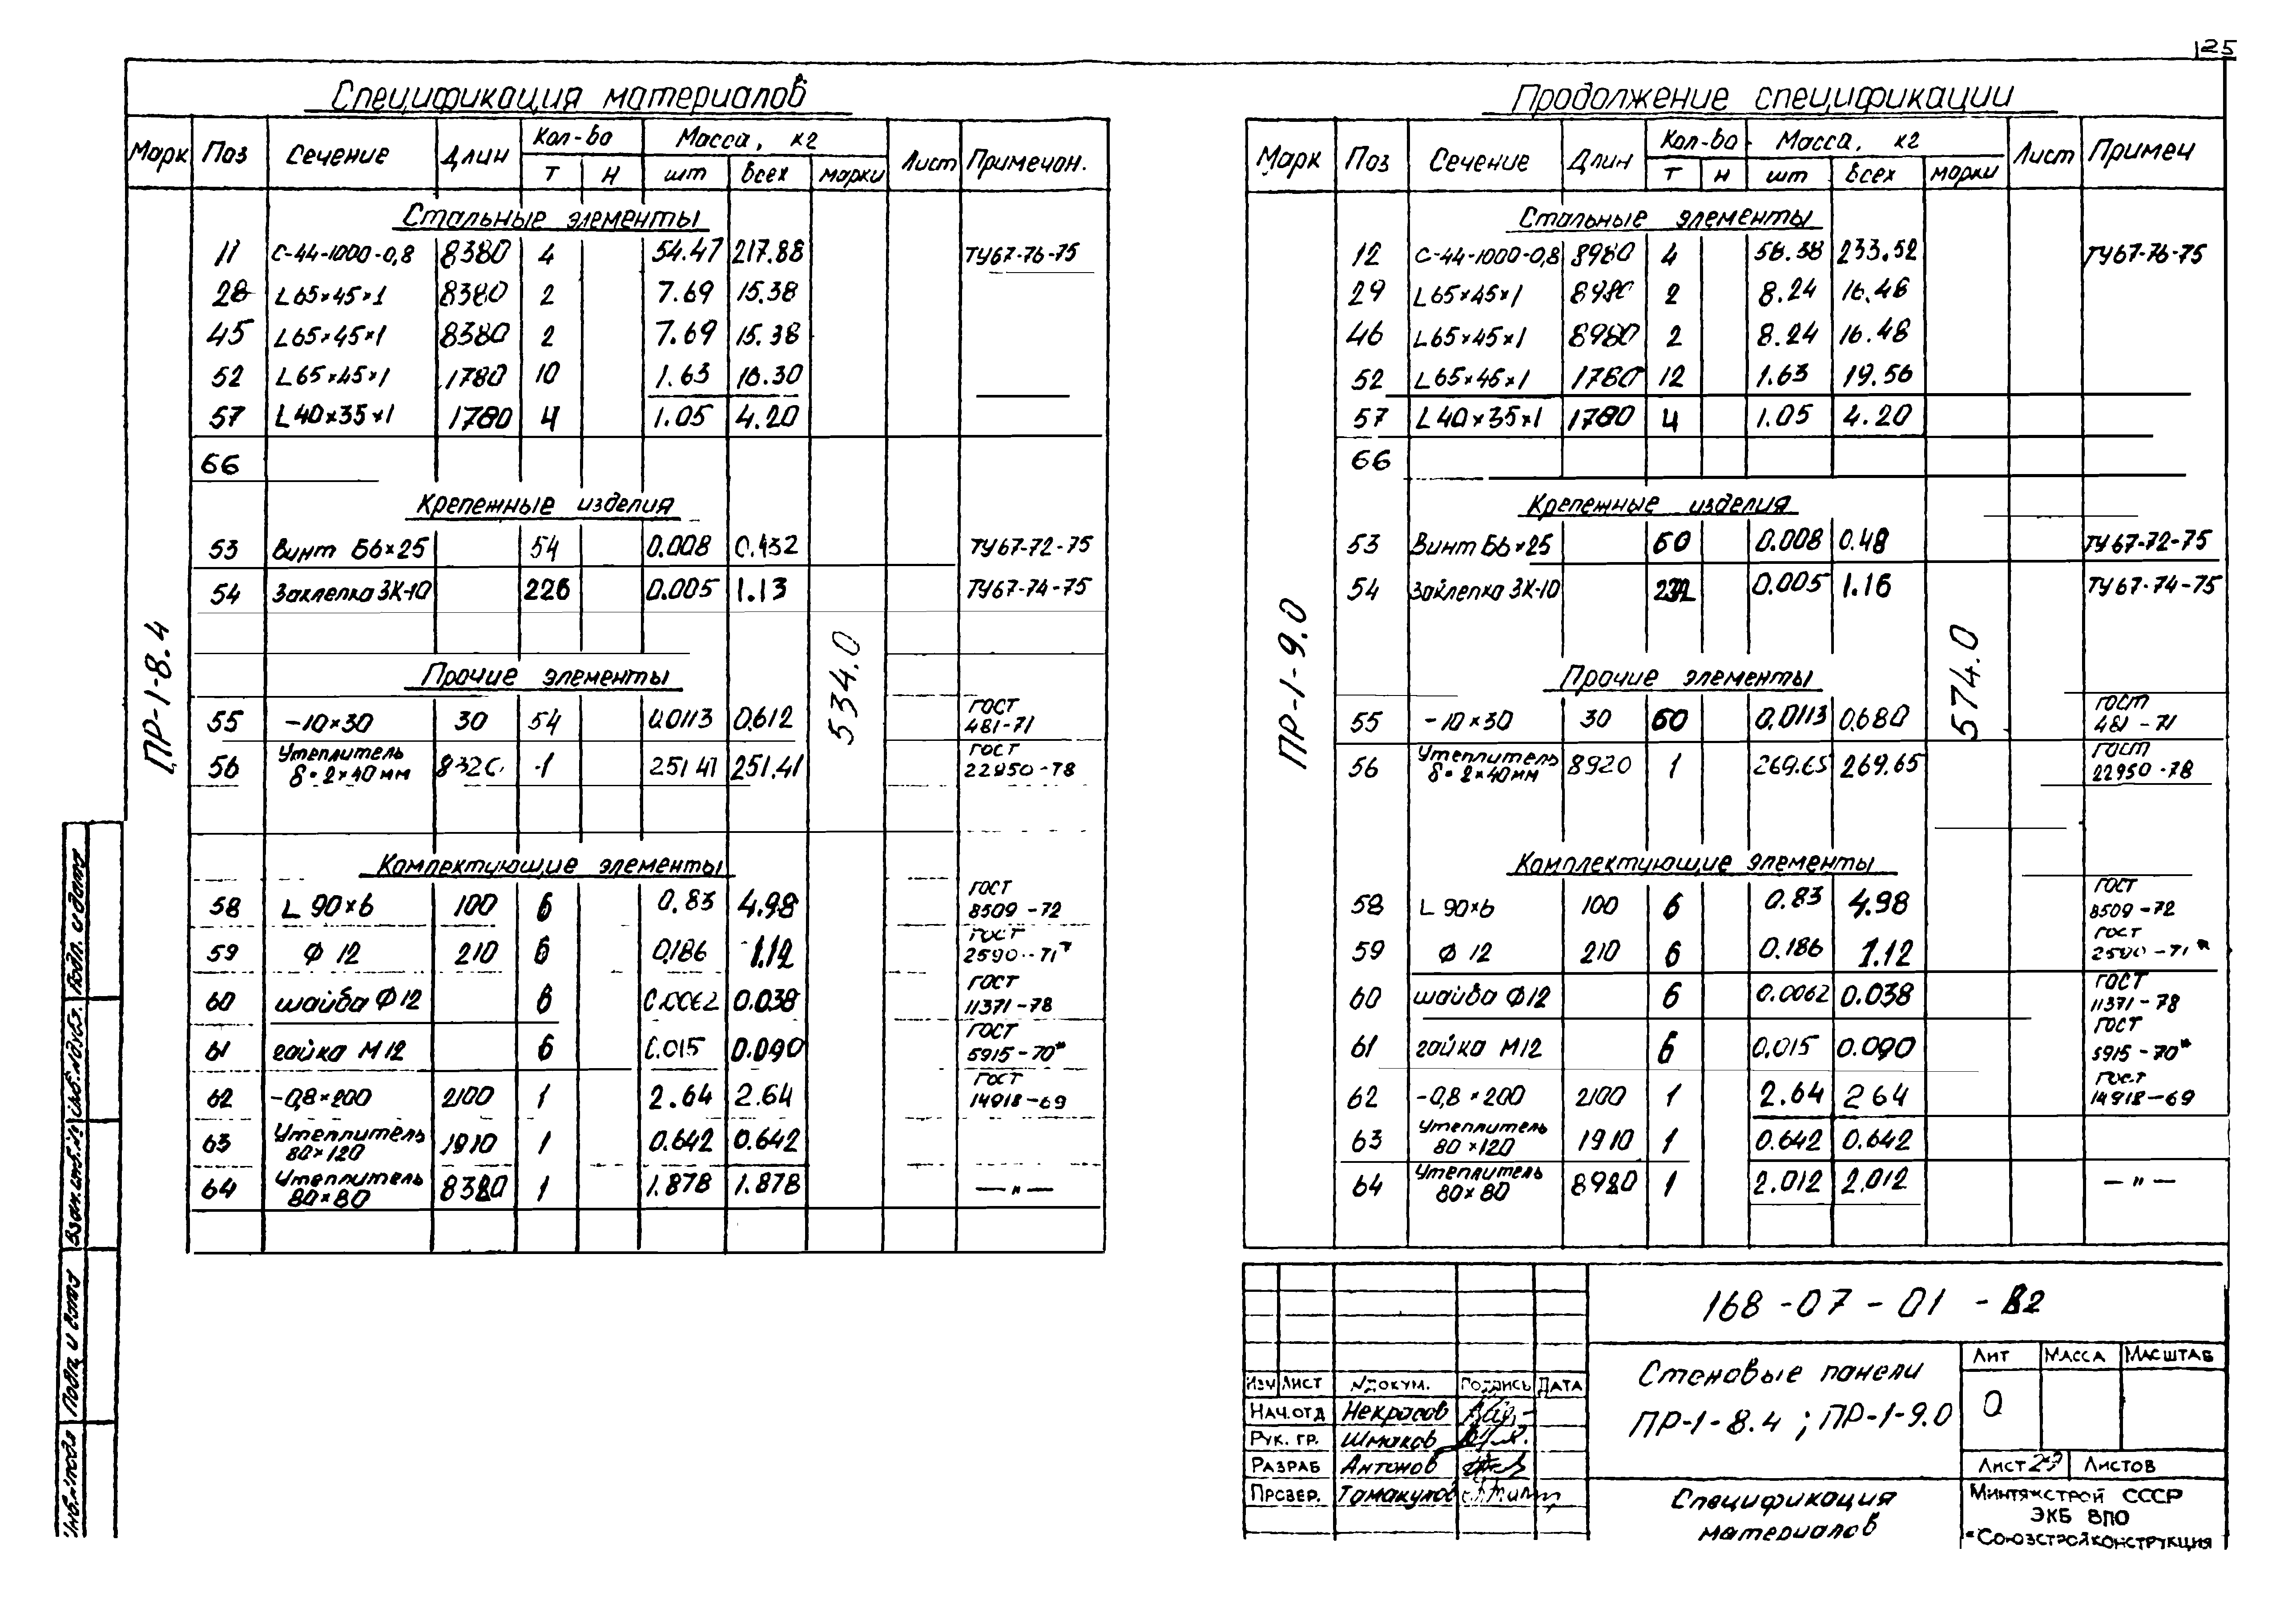 125
Спецификация материалов
Марк Поз Сечение Длин Кол-во Масса, кг Лист Примечан.
т н шт всех марки
Стальные элементы
11 С-44-1000-0,8 8380 4 54.47 217.88 ТУ67-76-75
28 L65×45×1 8380 2 7.69 15.38
45 L65×45×1 8380 2 7.69 15.38
52 L65×45×1 1780 10 1.63 16.30
57 L40×35×1 1780 4 1.05 4.20
66
Крепежные изделия
53 Винт Б6×25 54 0.008 0.432 ТУ67-72-75
54 Заклепка ЗК-10 226 0.005 1.13 ТУ67-74-75
ПР-1-8.4
534.0
Прочие элементы
55 -10×30 30 54 0.0113 0.612 ГОСТ 481-71
56 Утеплитель δ=2×40мм 8320 1 251.41 251.41 ГОСТ 22950-78
Комплектующие элементы
58 L 90×6 100 6 0.83 4.98 ГОСТ 8509-72
59 Ф 12 210 6 0.186 1.12 ГОСТ 2590-71*
60 шайба Ф12 6 0.0062 0.038 ГОСТ 11371-78
61 гайка М12 6 0.015 0.090 ГОСТ 5915-70*
62 -0,8×200 2100 1 2.64 2.64 ГОСТ 14918-69
63 Утеплитель 80×120 1910 1 0.642 0.642
64 Утеплитель 80×80 8380 1 1.878 1.878 — " —
Продолжение спецификации
Марк Поз Сечение Длин Кол-во Масса, кг Лист Примеч
т н шт всех марки
Стальные элементы
12 С-44-1000-0,8 8980 4 58.38 233.52 ТУ67-76-75
29 L65×45×1 8980 2 8.24 16.48
46 L65×45×1 8980 2 8.24 16.48
52 L65×45×1 1780 12 1.63 19.56
57 L40×35×1 1780 4 1.05 4.20
66
Крепежные изделия
53 Винт Б6×25 60 0.008 0.48 ТУ67-72-75
54 Заклепка ЗК-10 232 0.005 1.16 ТУ67-74-75
ПР-1-9.0
574.0
Прочие элементы
55 -10×30 30 60 0.0113 0.680 ГОСТ 481-71
56 Утеплитель δ=2×40мм 8920 1 269.65 269.65 ГОСТ 22950-78
Комплектующие элементы
58 L 90×6 100 6 0.83 4.98 ГОСТ 8509-72
59 Ф 12 210 6 0.186 1.12 ГОСТ 2590-71*
60 шайба Ф12 6 0.0062 0.038 ГОСТ 11371-78
61 гайка М12 6 0.015 0.090 ГОСТ 5915-70*
62 -0,8×200 2100 1 2.64 2 64 ГОСТ 14918-69
63 Утеплитель 80×120 1910 1 0.642 0.642
64 Утеплитель 80×80 8980 1 2.012 2.012 — " —
168-07-01-В2
Изм Лист №докум. Подпись Дата
Нач.отд Некрасов
Рук. гр. Шмаков
Разраб Антонов
Провер. Томакулов
Стеновые панели
ПР-1-8.4 ; ПР-1-9.0
Лит Масса Масштаб
О
Лист 23 Листов
Спецификация
материалов
Минтяжстрой СССР
ЭКБ ВПО
"Союзстройконструкция
Инв.№подл Подп. и дата Взам.инв.№ Инв.№дубл. Подп. и дата